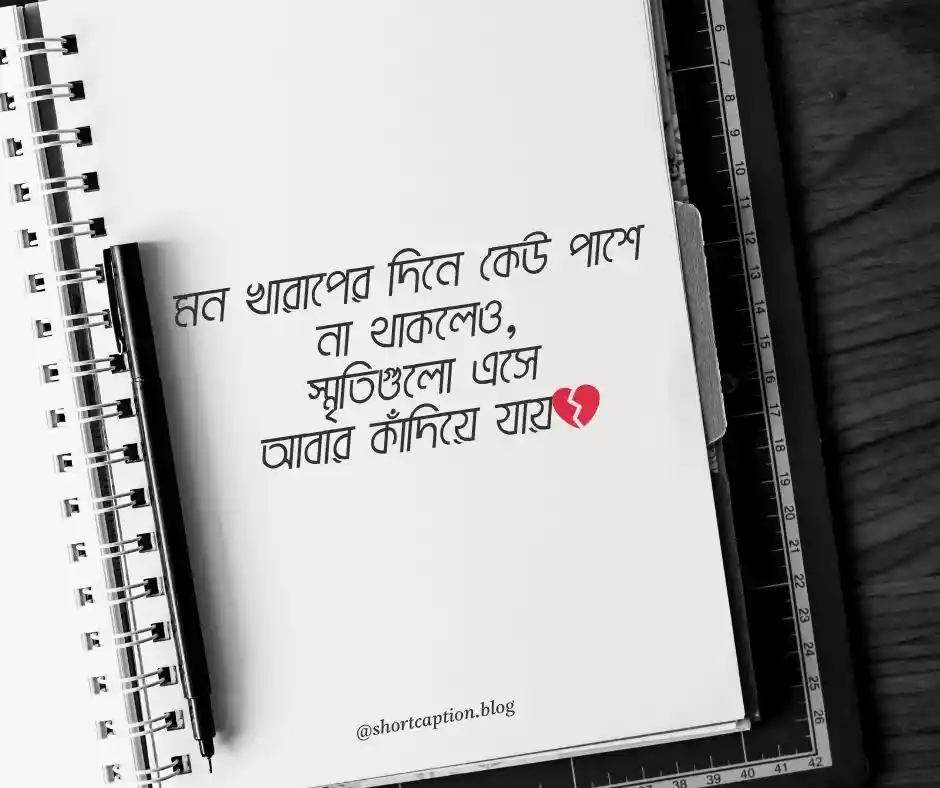 মন খারাপের দিনে কেউ পাশে
না থাকলেও,
স্মৃতিগুলো এসে
আবার কাঁদিয়ে যায়💔
@shortcaption.blog
6
7
8
9
10
11
12
13
14
15
16
17
18
19
20
21
22
23
24
25
26
38 39 40 41 42